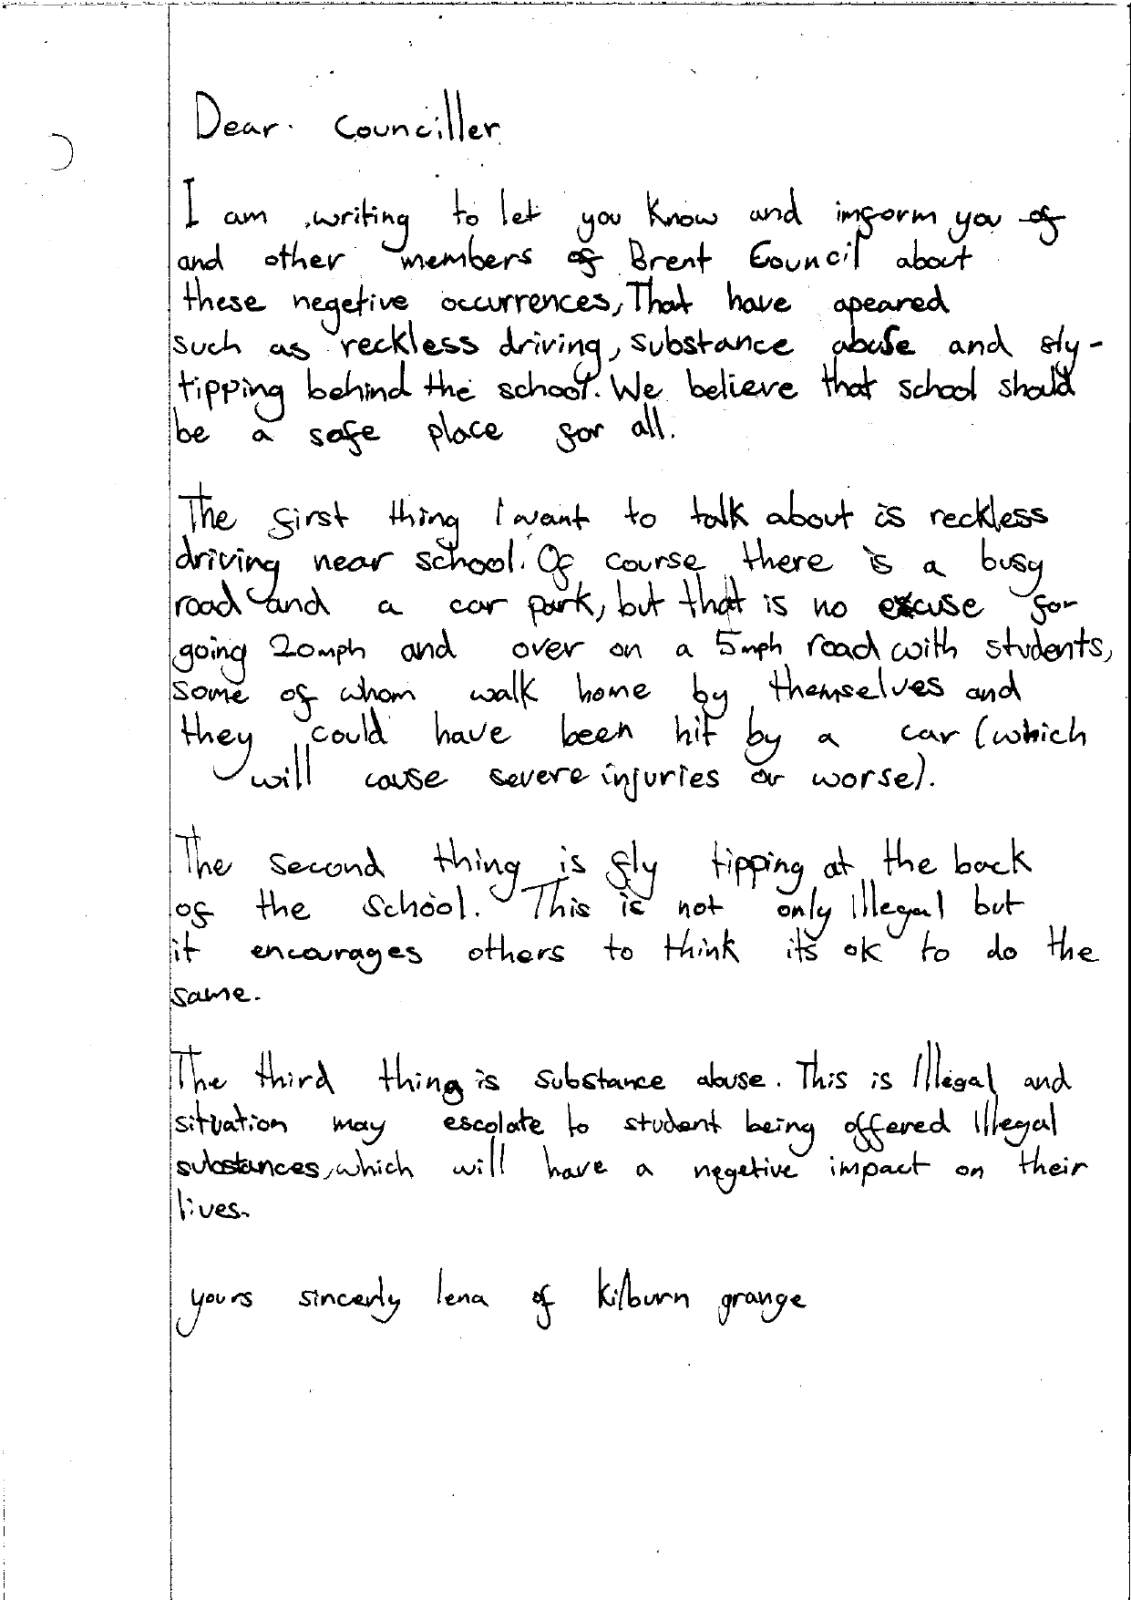 Dear. Counciller
I am writing to let you know and imform you of
and other members of Brent Council about
these negetive occurrences, That have apeared
such as reckless driving, substance abuse and fly-
tipping behind the school. We believe that school should
be a safe place for all.
The first thing I want to talk about is reckless
driving near school. Of course there is a busy
road and a car park, but that is no excuse for
going 20mph and over on a 5mph road with students,
some of whom walk home by themselves and
they could have been hit by a car (which
will cause severe injuries or worse).
The second thing is fly tipping at the back
of the school. This is not only Illegal but
it encourages others to think its ok to do the
same.
The third thing is substance abuse. This is Illegal and
situation may escolate to student being offered Illegal
substances, which will have a negetive impact on their
lives.
yours sincerly lena of kilburn grange